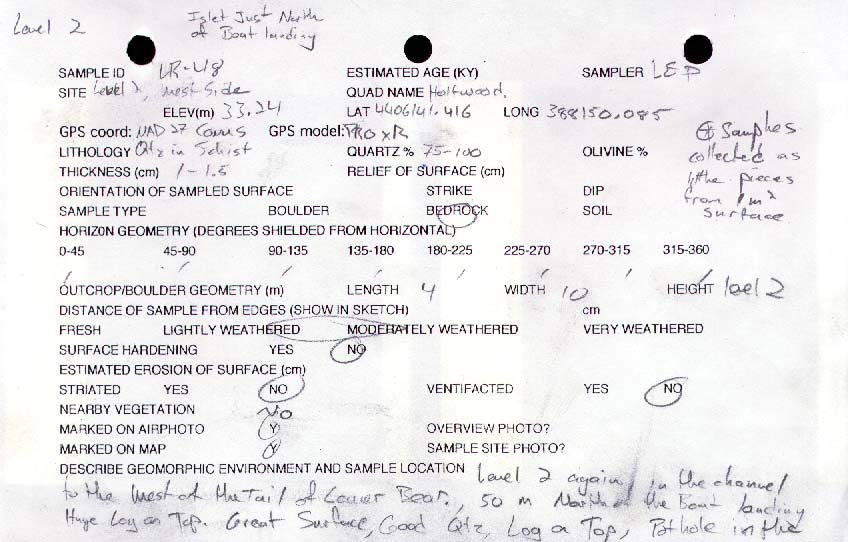 Level 2
Islet Just North
of Boat landing
SAMPLE ID LR-48 ESTIMATED AGE (KY) SAMPLER LEP
SITE Level 2, west side QUAD NAME Holtwood.
ELEV(m) 33.24 LAT 4406141.416 LONG 388150.085
GPS coord: NAD 27 Conus GPS model: PRO XR
LITHOLOGY Qtz in Schist QUARTZ % 75-100 OLIVINE %
THICKNESS (cm) 1-1.5 RELIEF OF SURFACE (cm)
Samples
collected as
pieces
from 1 m²
surface
ORIENTATION OF SAMPLED SURFACE STRIKE DIP
SAMPLE TYPE BOULDER BEDROCK SOIL
HORIZON GEOMETRY (DEGREES SHIELDED FROM HORIZONTAL)
0-45 45-90 90-135 135-180 180-225 225-270 270-315 315-360
/ / / / / / / /
OUTCROP/BOULDER GEOMETRY (m) LENGTH 4 WIDTH 10 HEIGHT level 2
DISTANCE OF SAMPLE FROM EDGES (SHOW IN SKETCH) cm
FRESH LIGHTLY WEATHERED MODERATELY WEATHERED VERY WEATHERED
SURFACE HARDENING YES NO
ESTIMATED EROSION OF SURFACE (cm)
STRIATED YES NO VENTIFACTED YES NO
NEARBY VEGETATION No
MARKED ON AIRPHOTO Y OVERVIEW PHOTO?
MARKED ON MAP Y SAMPLE SITE PHOTO?
DESCRIBE GEOMORPHIC ENVIRONMENT AND SAMPLE LOCATION Level 2 again, in the channel
to the West of the Tail of Lower Bear., 50 m North of the Boat landing
Huge Log on Top. Great Surface, Good Qtz, Log on Top, Pothole in the